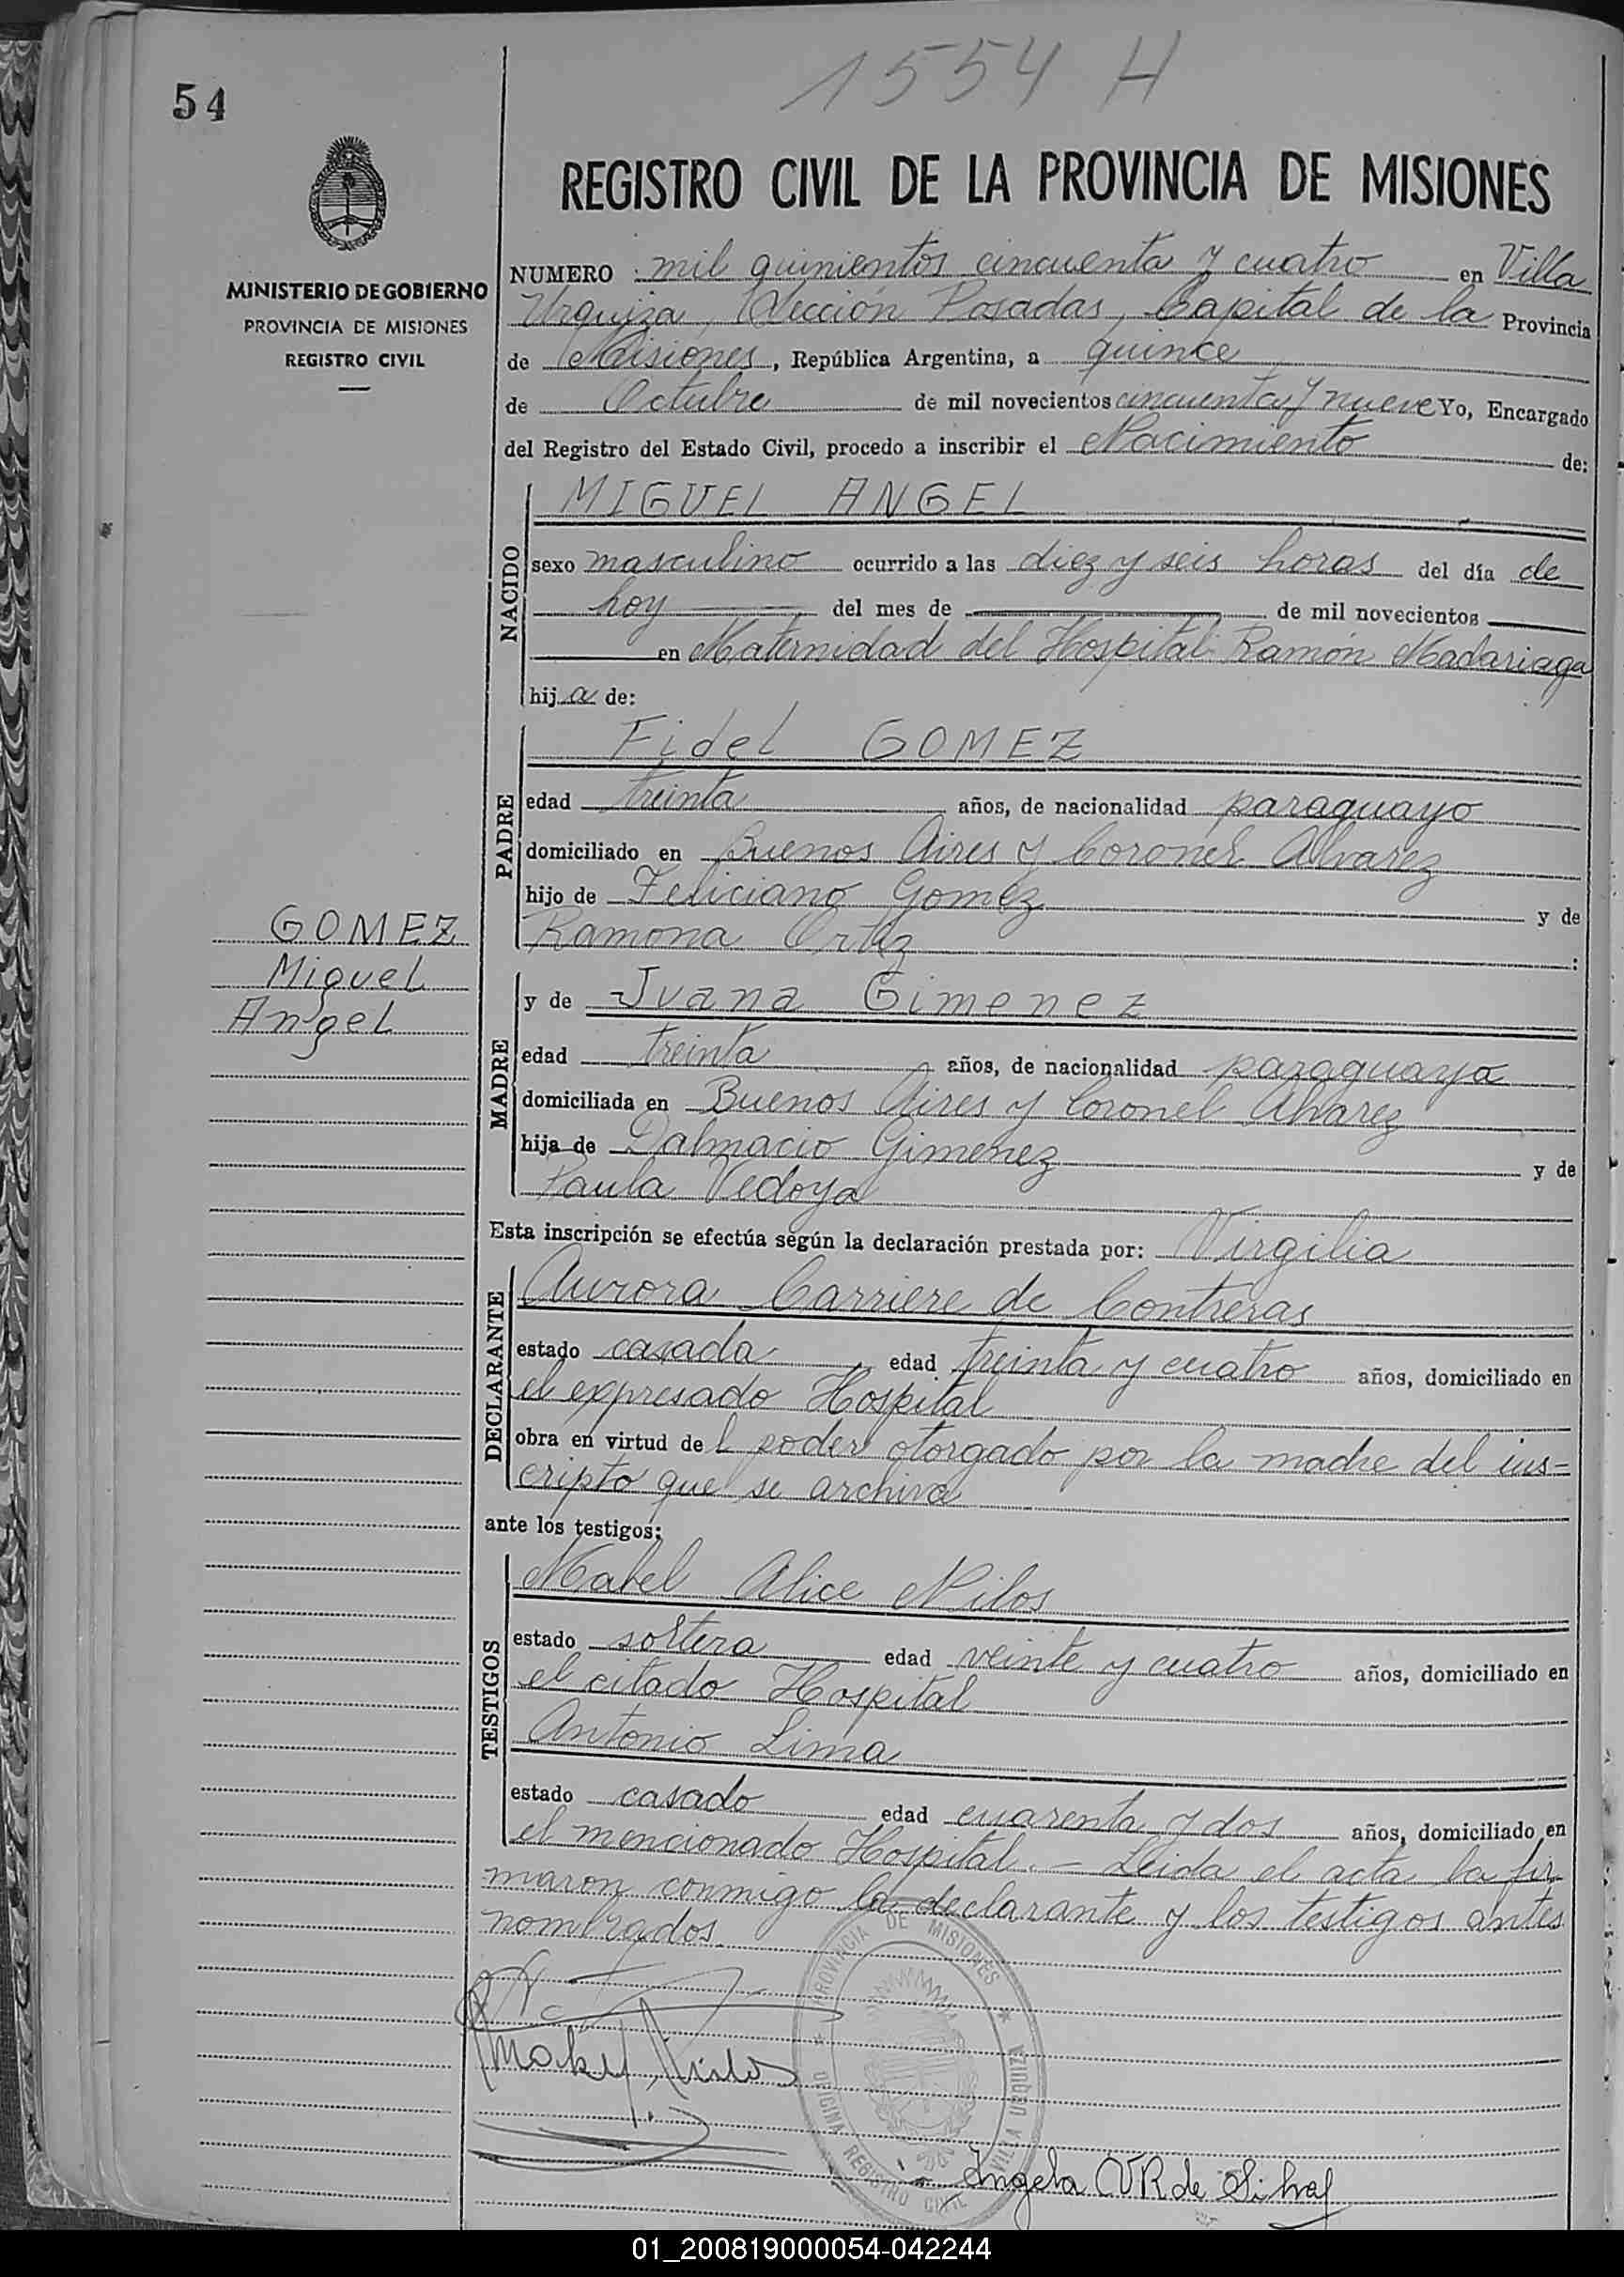 54
1554 H
REGISTRO CIVIL DE LA PROVINCIA DE MISIONES
MINISTERIO DE GOBIERNO
PROVINCIA DE MISIONES
REGISTRO CIVIL
NUMERO mil quinientos cincuenta y cuatro en Villa
Urquiza, Sección Posadas, Capital de la Provincia
de Misiones, República Argentina, a quince
de Octubre de mil novecientos cincuenta y nueve Yo, Encargado
del Registro del Estado Civil, procedo a inscribir el Nacimiento de:
NACIDO
MIGUEL ANGEL
sexo masculino ocurrido a las diez y seis horas del día de
hoy del mes de de mil novecientos
en Maternidad del Hospital Ramón Madariaga
hij a de:
PADRE
Fidel GOMEZ
edad treinta años, de nacionalidad paraguayo
domiciliado en Buenos Aires y Coronel Alvarez
hijo de Feliciano Gomez y de
Ramona Ortiz :
GOMEZ
Miguel
Angel
MADRE
y de Juana Gimenez
edad treinta años, de nacionalidad paraguaya
domiciliada en Buenos Aires y Coronel Alvarez
hija de Dalmacio Gimenez y de
Paula Vedoya
Esta inscripción se efectúa según la declaración prestada por: Virgilia
DECLARANTE
Aurora Carriere de Contreras
estado casada edad treinta y cuatro años, domiciliado en
el expresado Hospital
obra en virtud de l poder otorgado por la madre del ins-
cripto que se archiva
ante los testigos:
TESTIGOS
Mabel Alice Nilos
estado soltera edad veinte y cuatro años, domiciliado en
el citado Hospital
Antonio Lima
estado casado edad cuarenta y dos años, domiciliado en
el mencionado Hospital. - Leida el acta la fir
maron conmigo la declarante y los testigos antes
nombrados.
PROVINCIA DE MISIONES
OFICINA REGISTRO CIVIL
VILLA URQUIZA
Mabel Nilos
Angela V R de Silva
01_200819000054-042244